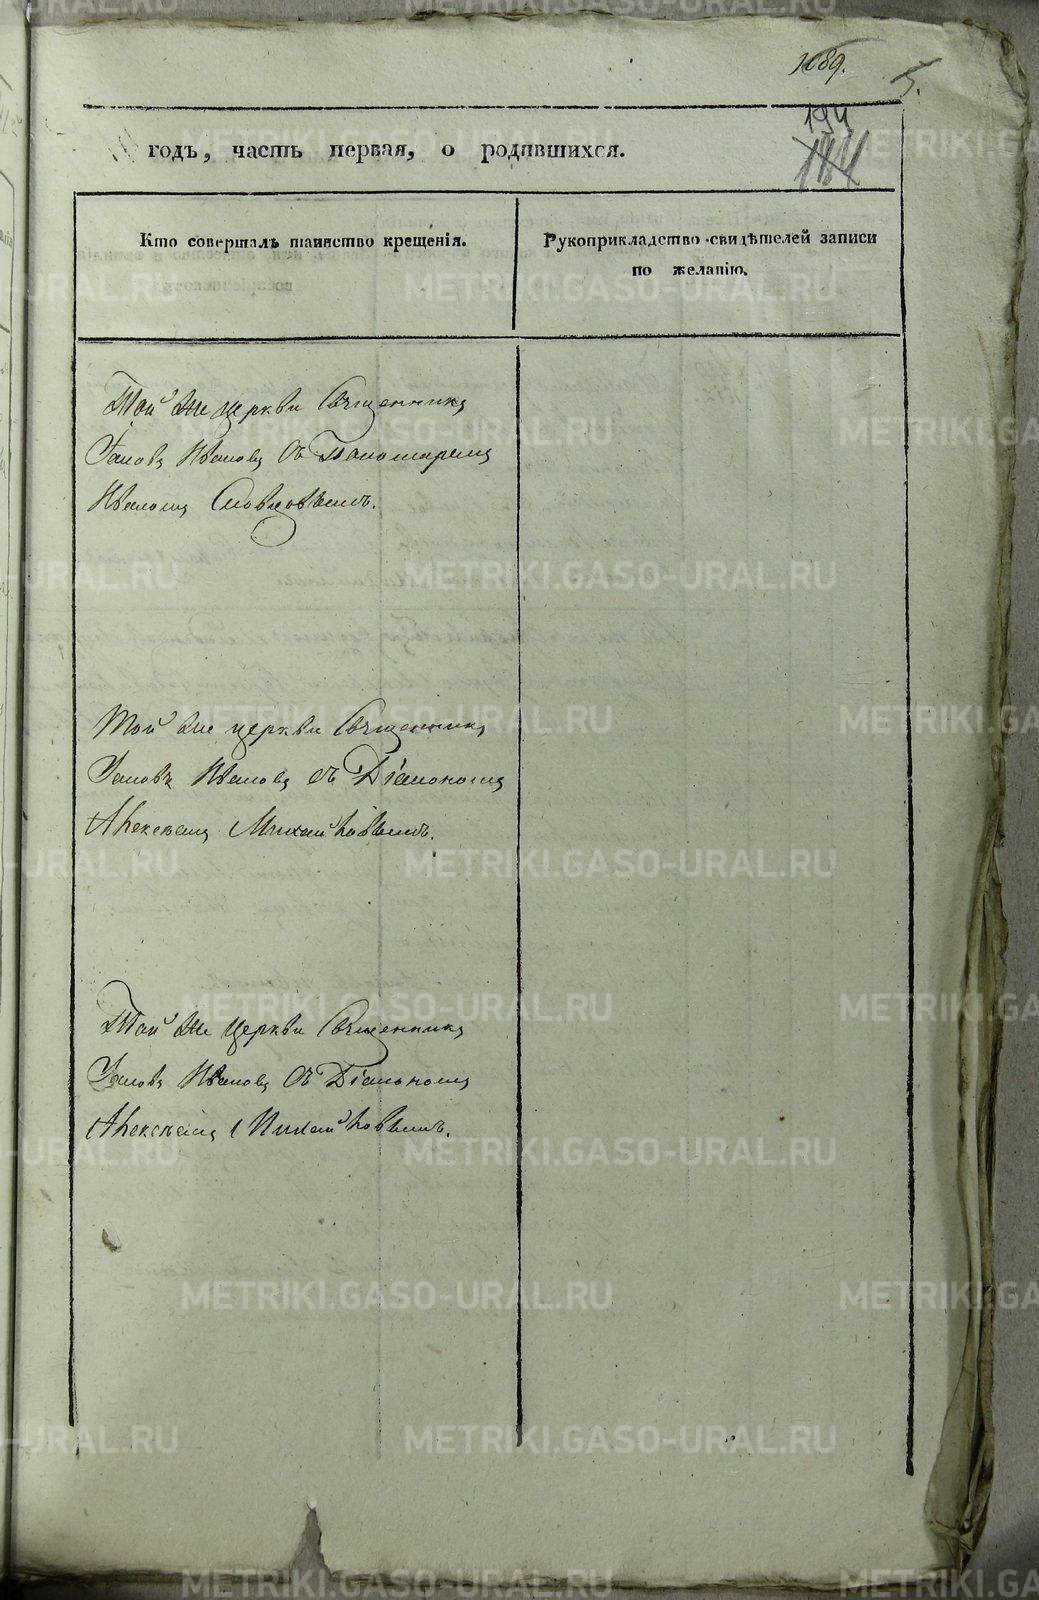 1089.
5.
194
144
годъ, часть первая, о родившихся.
Кто совершалъ таинство крещенія.
Рукоприкладство свидѣтелей записи
по желанію.
Той же церкви Священникъ
Іаковъ Ивановъ съ Пономаремъ
Иваномъ Словцовымъ.
Той же церкви Священникъ
Іаковъ Ивановъ съ Діакономъ
Алексѣемъ Михайловымъ.
Той же церкви Священникъ
Іаковъ Ивановъ съ Діакономъ
Алексѣемъ Михайловымъ.
METRIKI.GASO-URAL.RU